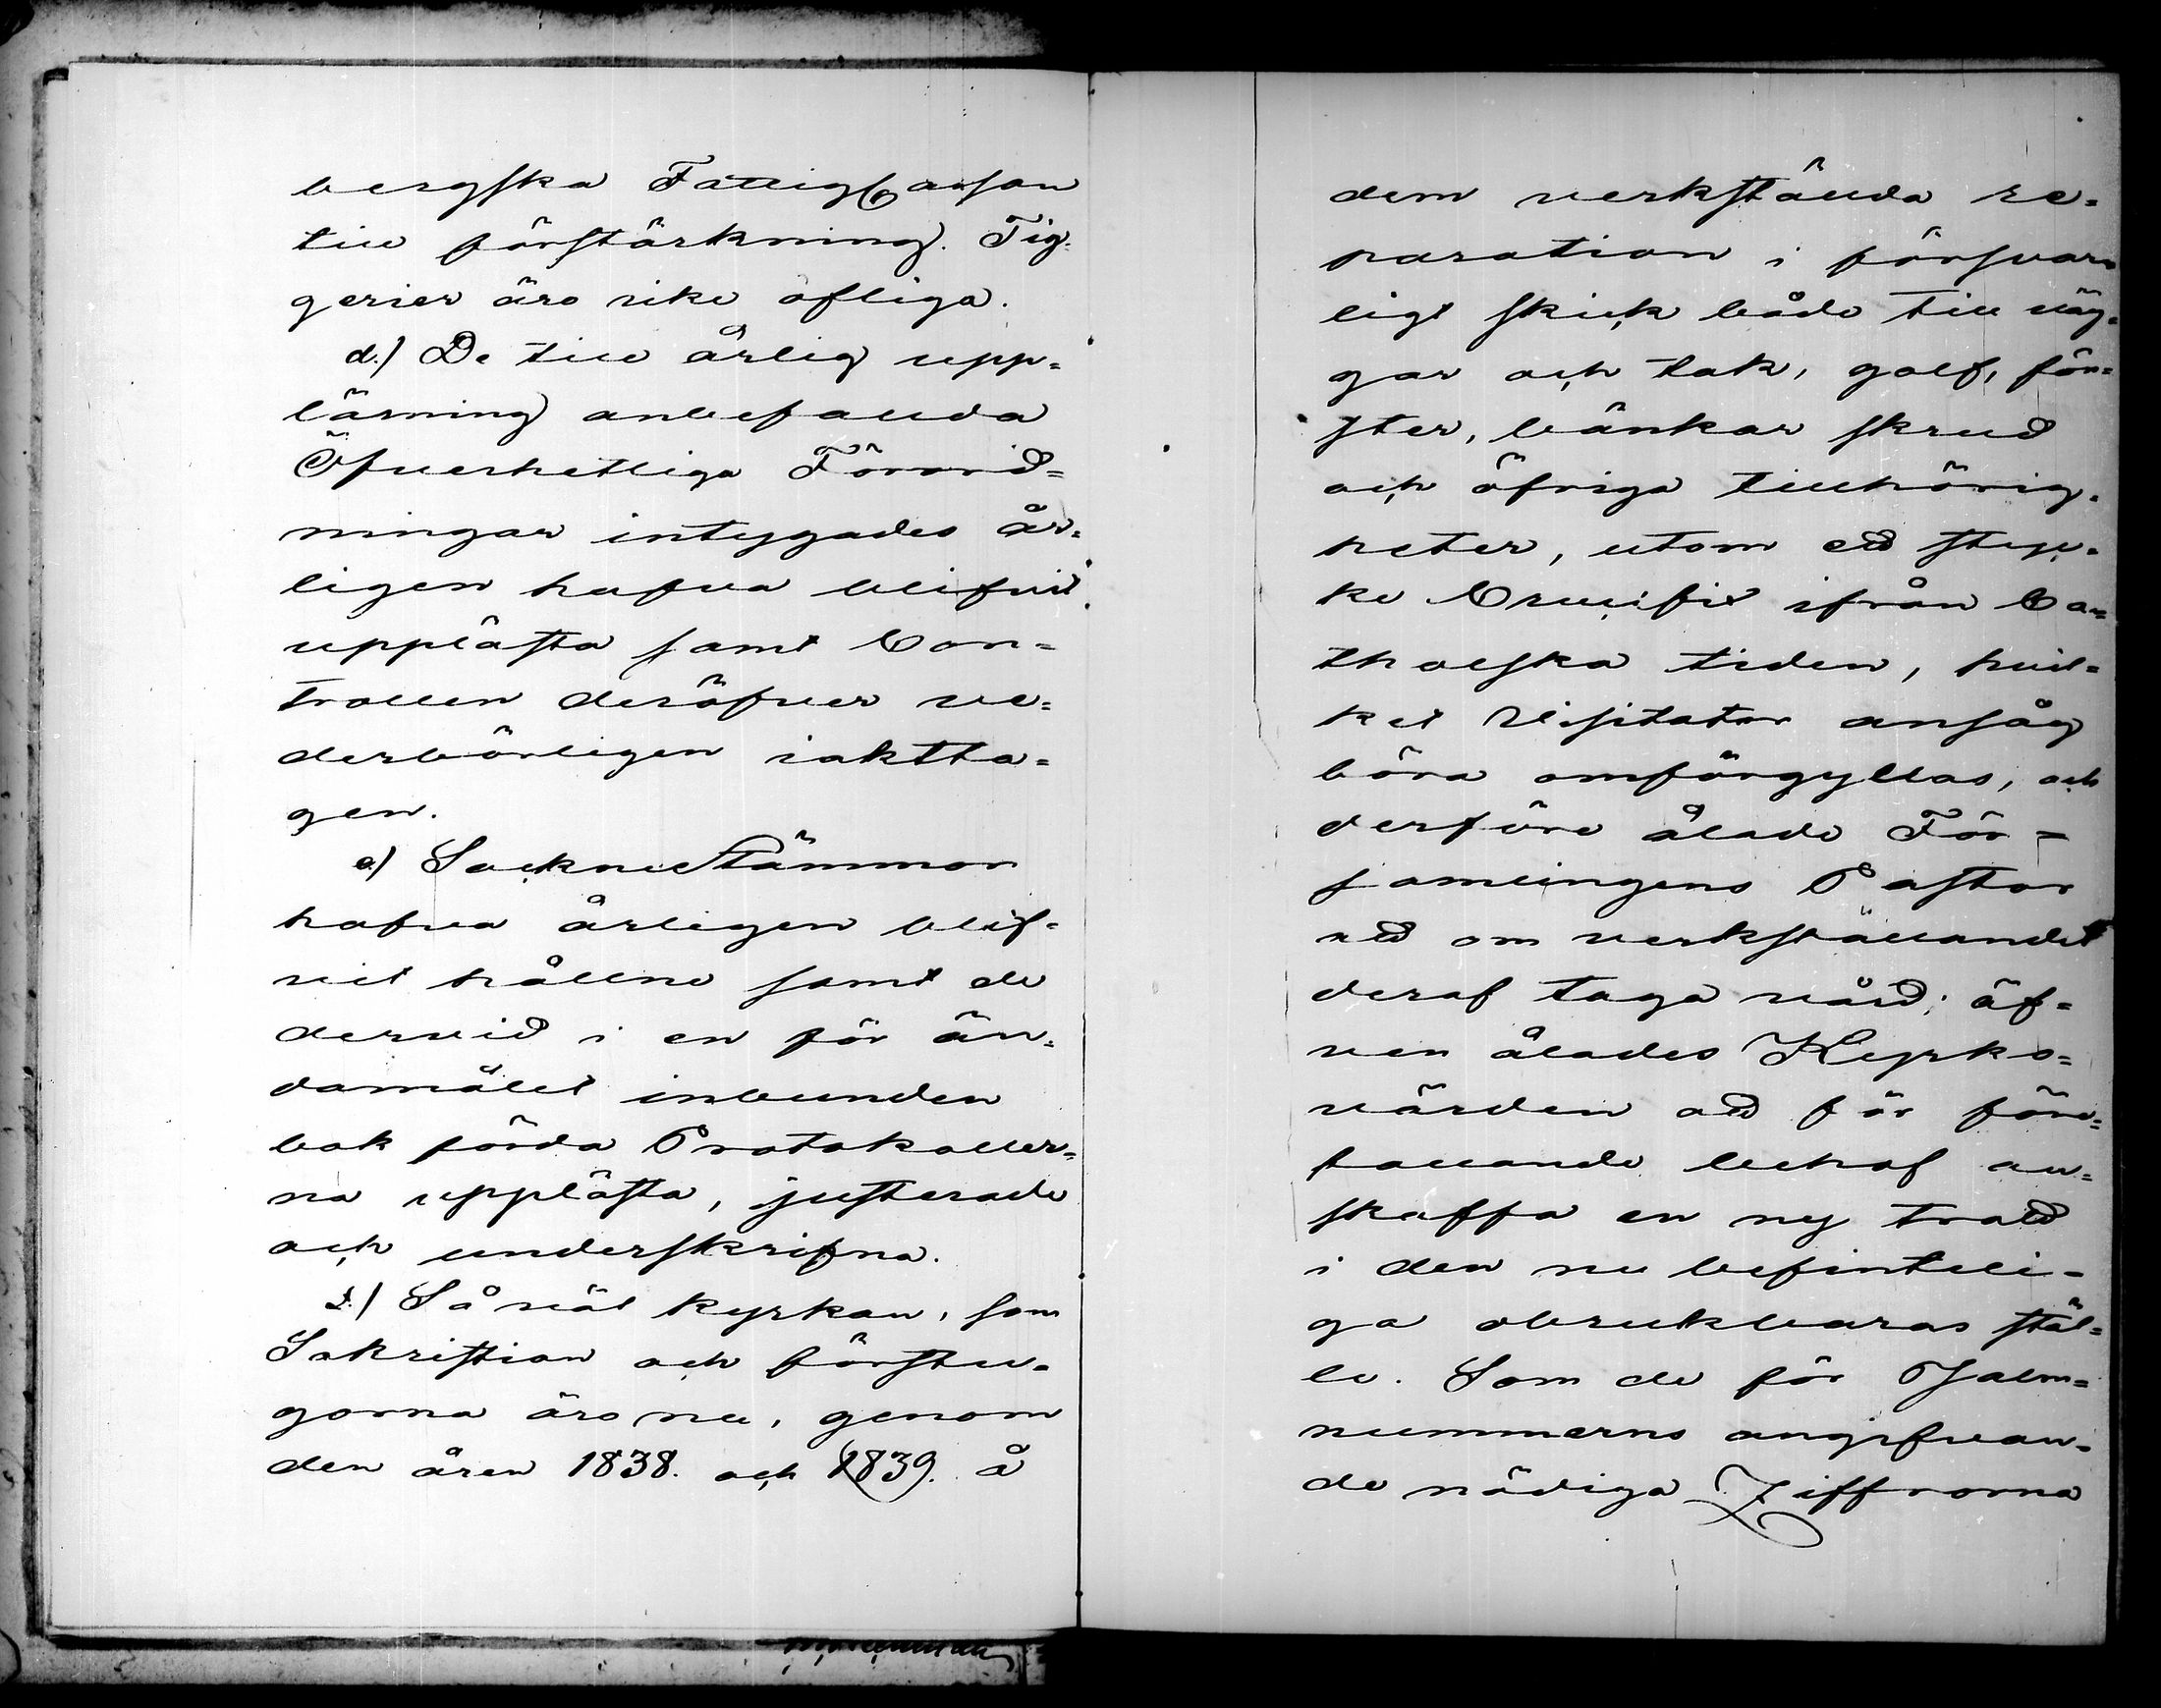 bergska FattigCassan
till förstärkning. Tig-
gerier äro icke ofliga.
d.) De till årlig upp-
läsning anbefallda
Öfverhetliga Förord-
ningar intygades år-
ligen hafva blifvit
upplästa samt Con-
trollen deröfver ve-
derbörligen iakttа-
gen.
e.) SockneStämmor
hafva årligen blif-
vit hållne samt de
dervid i en för än-
damålet inbunden
bok förda Protokoller-
na upplästa, justerade
och underskrifna.
f.) Så väl kyrkan, som
Sakristian och förstu-
gorna äro nu, genom
den åren 1838. och 1839. å
dem verkstälda re-
paration i försvar-
ligt skick både till väg-
gar och tak, golf, fön-
ster, bänkar skrud
och öfriga tillhörig-
heter, utom ett styc-
ke Crucifix ifrån Ca-
tholska tiden, hvil-
ket Visitator ansåg
böra omförgyllas, och
derföre ålade För-
samlingens Pastor
att om verkställandet
deraf taga vård; äf-
ven ålades Kyrko-
värden att för före-
fallande behof an-
skaffa en ny tratt
i den nu befintli-
ga obrukbaras stäl-
le. Som de för Psalm-
nummerns angifvan-
de nödiga Ziffrorna